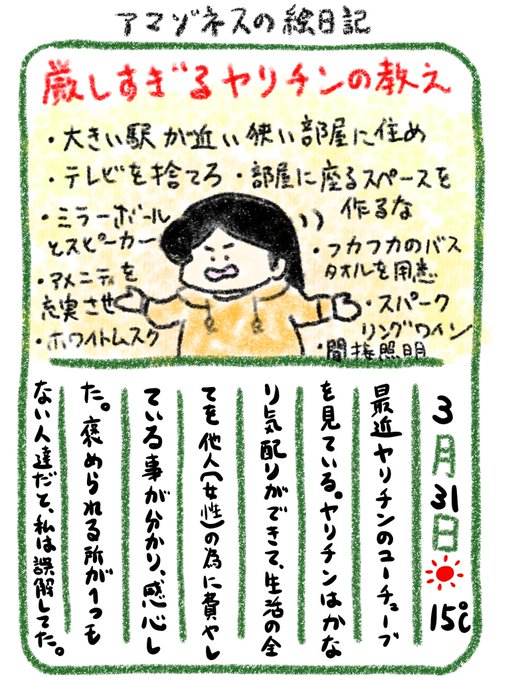 アマゾネスの絵日記
厳しすぎるヤリチンの教え
・大きい駅が近い狭い部屋に住め
・テレビを捨てろ・部屋に座るスペースを
作るな
・ミラーボール
とスピーカー
・フカフカのバス
タオルを用意
・アメニティを
充実させ
・スパーク
リングワイン
・ホワイトムスク
・間接照明
3月31日 15℃
最近ヤリチンのユーチューブ
を見ている。ヤリチンはかな
り気配りができて、生活の全
てを他人(女性)の為に費やし
ている事が分かり、感心し
た。褒められる所が1つも
ない人達だと、私は誤解してた。